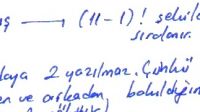 ış → (11-1)! şekil
sıralanır.
laya 2 yazılmaz. Çünkü
en ve arkadan bakıldığın